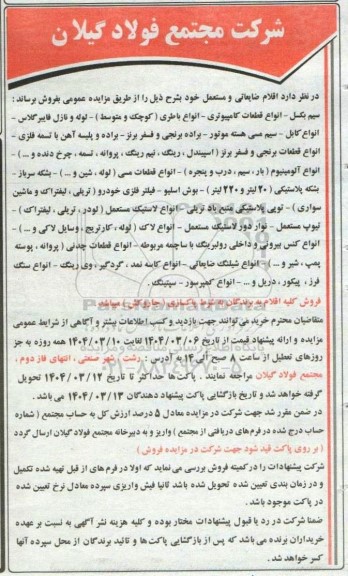 شرکت مجتمع فولاد گیلان
در نظر دارد اقلام ضایعاتی و مستعمل خود بشرح ذیل را از طریق مزایده عمومی بفروش برساند :
سیم بکسل - انواع قطعات کامپیوتری - انواع باطری ( کوچک و متوسط ) - لوله و نازل فایبرگلاس -
انواع کابل - سیم مسی هسته موتور - براده برنجی و فسفر برنز - براده و پلیسه آهن با تسمه فلزی -
انواع قطعات برنجی و فسفر برنز ( اسپیندل ، رینگ ، نیم رینگ ، پروانه ، تسمه ، چرخ دنده و ... ) -
انواع آلومینیوم ( بار ، سیم ، درب و پنجره ) - انواع قطعات مسی ( لوله ، شین و ... ) - بشکه سرباز -
بشکه پلاستیکی ( ۲۰ لیتر و ۲۲۰ لیتر ) - بوش اسلیو - فیلتر فلزی خودرو ( تریلی ، لیفتراک و ماشین
سواری ) - توپی پلاستیکی منبع باد تریلی - انواع لاستیک مستعمل ( لودر ، تریلی ، لیفتراک ) -
تیوپ مستعمل - نوار دور لاستیک مستعمل - انواع لاکه ( لوله ، کارتریج ، وسایل لاکی و ... ) -
انواع کنس بیرونی و داخلی رولبرینگ با ساچمه مربوطه - انواع قطعات چدنی ( پروانه ، پوسته
پمپ ، شیر و ... ) - انواع شیلنگ ضایعاتی - انواع کاسه نمد ، گردگیر ، وی رینگ - انواع سنگ
فرز ، پیکور ، دریل و ... - انواع کمپرسور - سپتینگ .
فروش کلیه اقلام به برندگان پاکسازی ( جاروکش ) میباشد
متقاضیان محترم خرید می‌توانند جهت بازدید و کسب اطلاعات بیشتر و آگاهی از شرایط عمومی
مزایده و ارائه پیشنهاد قیمت از تاریخ ۱۴۰۴/۰۳/۰۶ لغایت ۱۴۰۴/۰۳/۱۰ همه روزه به جز
روزهای تعطیل از ساعت ۸ صبح الی ۱۴ به آدرس : رشت ، شهر صنعتی ، انتهای فاز دوم ،
مجتمع فولاد گیلان مراجعه نمایند . پاکت ها حداکثر تا تاریخ ۱۴۰۴/۰۳/۱۲ تحویل
گرفته خواهد شد و تاریخ بازگشایی پاکت پیشنهاد دهندگان ۱۴۰۴/۰۳/۱۳ می باشد .
در ضمن مقرر شد جهت شرکت در مزایده معادل ۵ درصد ارزش کل به حساب مجتمع ( شماره
حساب درج شده در فرم های دریافتی از مجتمع ) واریز و به دبیرخانه مجتمع فولاد گیلان ارسال گردد
( بر روی پاکت قید شود جهت شرکت در مزایده فروش )
شرکت پیشنهادات را در کمیته فروش بررسی می نماید که اولا در فرم های از قبل تهیه شده تکمیل
و در زمان بندی تعیین شده تحویل شده باشد ثانیا فیش واریزی سپرده معادل نرخ تعیین شده
در پاکت موجود باشد .
ضمنا شرکت در رد یا قبول پیشنهادات مختار بوده و کلیه هزینه نشر آگهی به نسبت بر عهده
خریداران برنده می باشد که پس از بازگشایی پاکت ها و تائید برندگان از محل سپرده آنها
کسر خواهد شد .